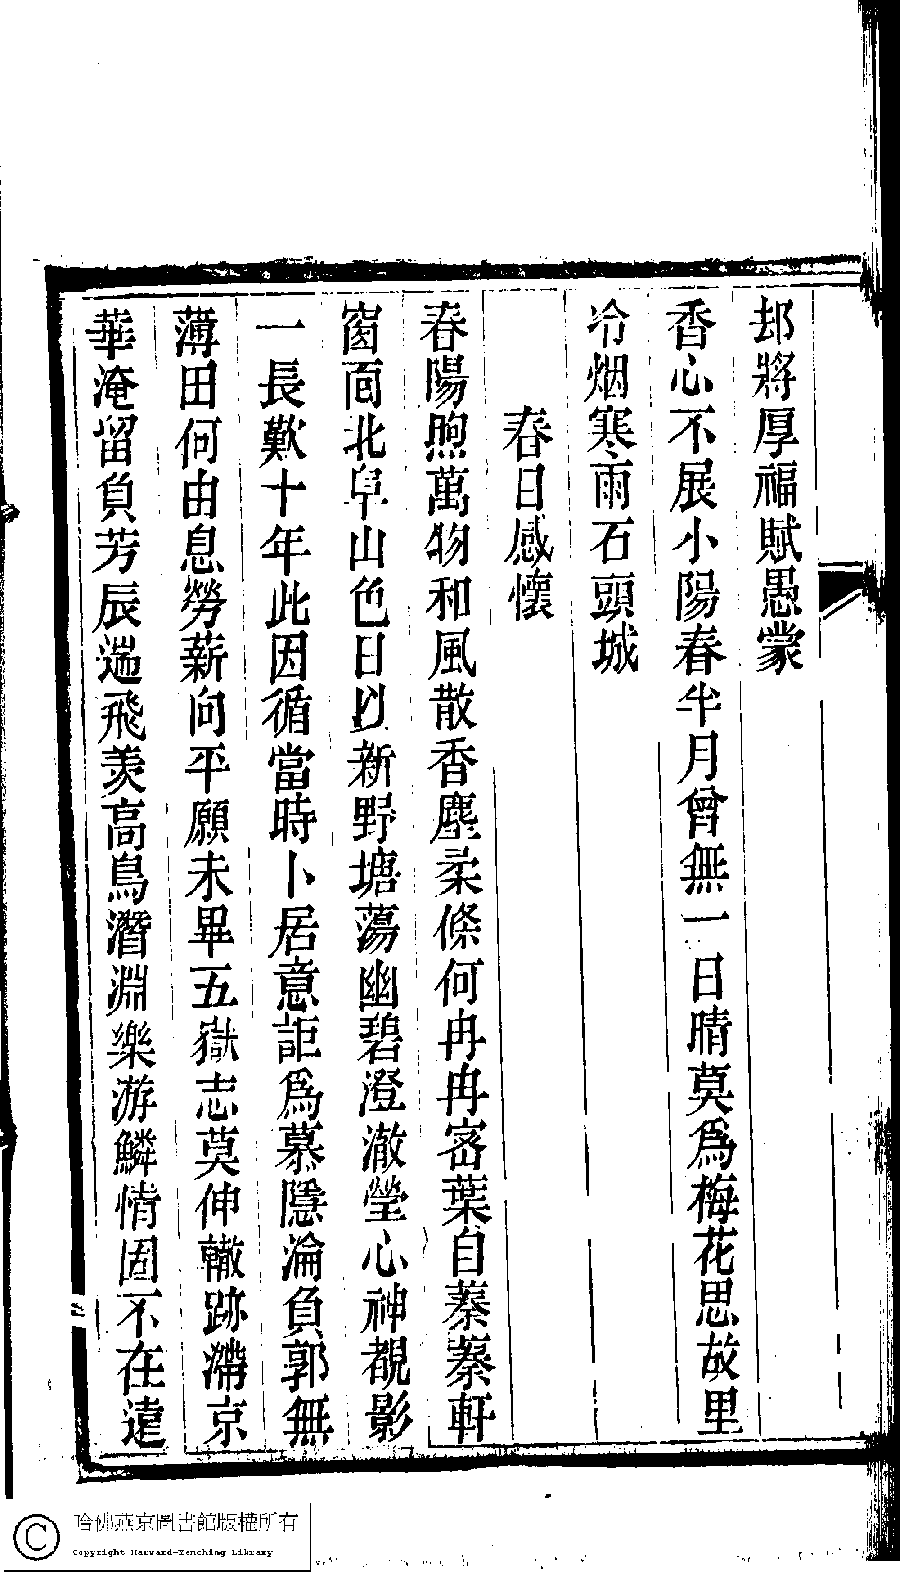 邨將厚福賦愚蒙
香心不展小陽春半月曾無一日晴莫爲梅花思故里
冷烟寒雨石頭城
春日感懷
春陽煦萬物和風散香塵柔條何冉冉密葉自蓁蓁軒
窗面北阜山色日以新野塘蕩幽碧澄澈瑩心神覩影
一長歎十年此因循當時卜居意詎爲慕隱淪負郭無
薄田何由息勞薪向平願未畢五嶽志莫伸轍跡滯京
華淹留負芳辰遄飛羨高鳥潛淵樂游鱗情固不在遠
哈佛燕京圖書館版權所有
Copyright Harvard-Yenching Library